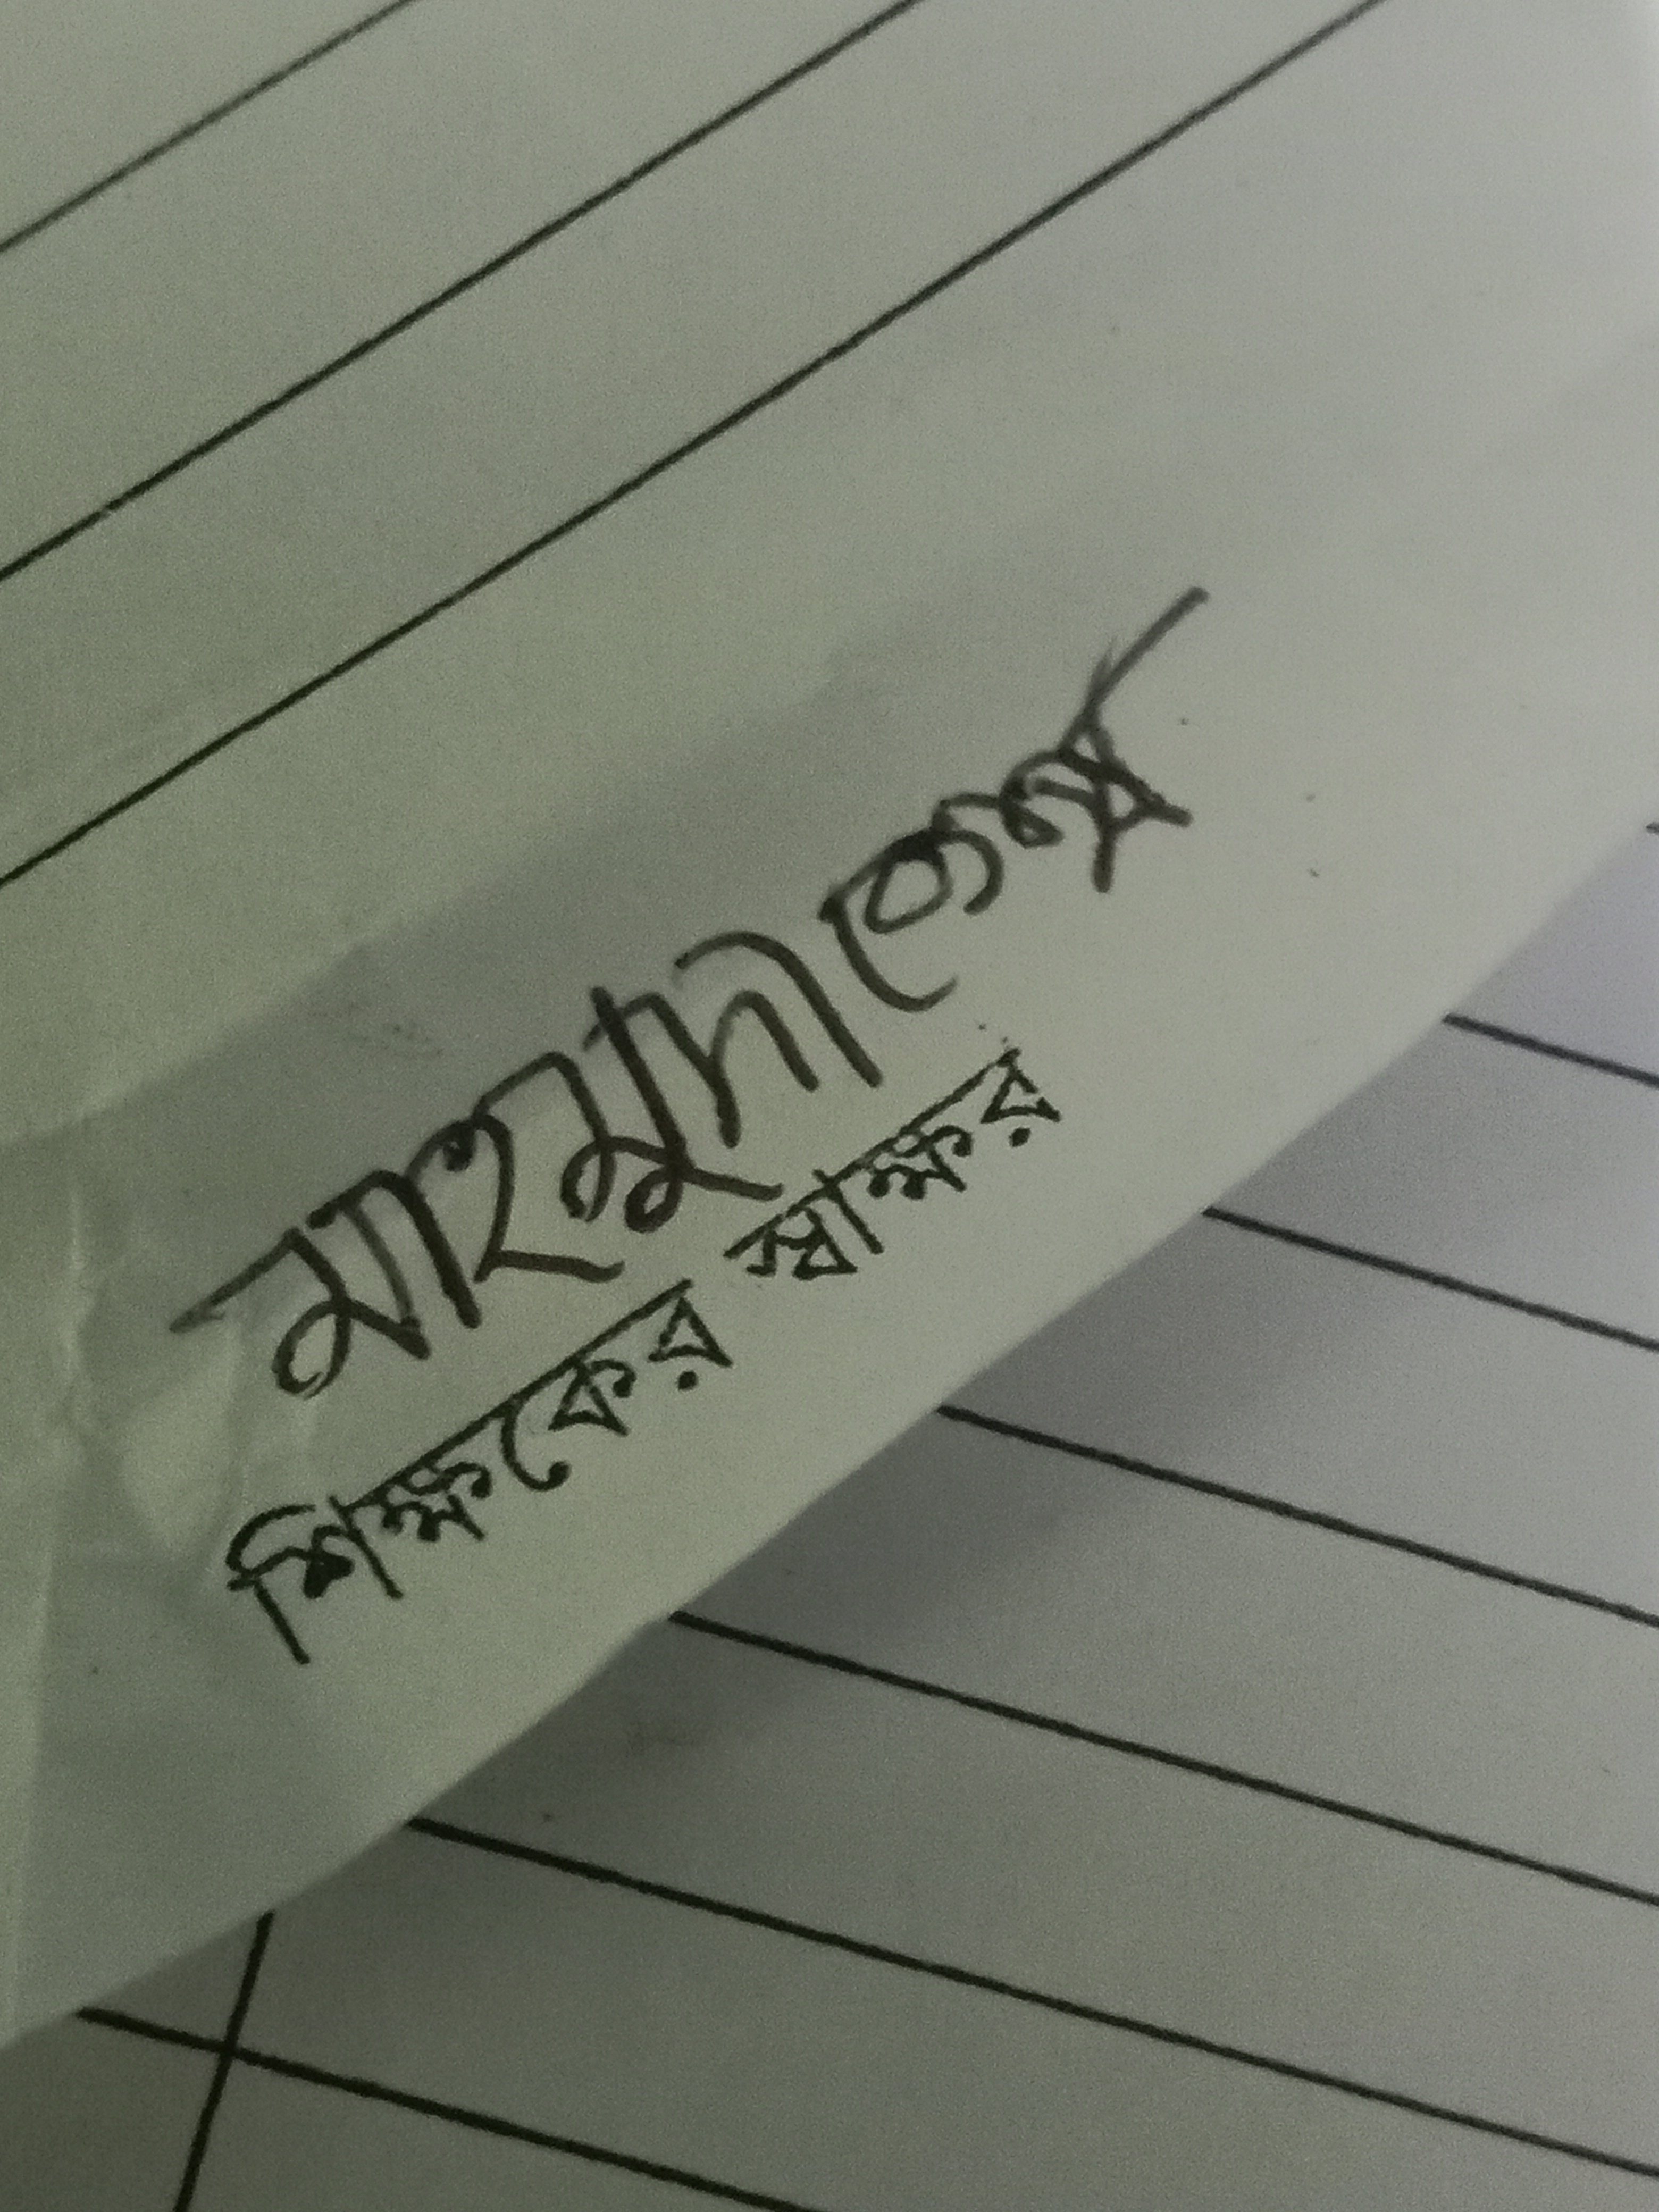 মাহমুদা বেগম
শিক্ষকের স্বাক্ষর